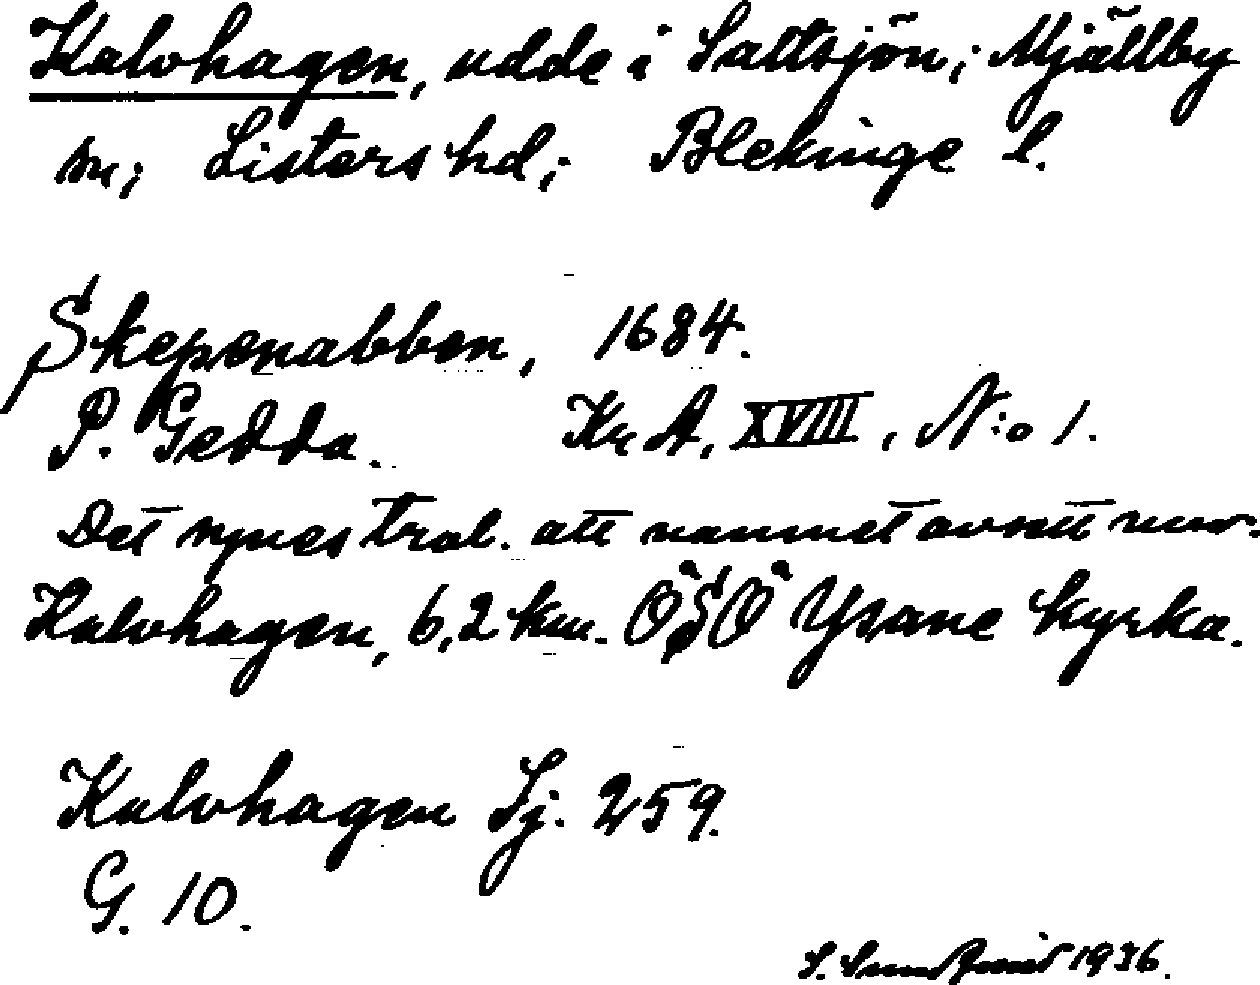 Kalvhagen, udde i Saltsjön; Mjällby
sn; Listers hd; Blekinge l.
Skepenabben, 1684.
P. Gedda. Kr A, XVIII, N:o 1.
Det synes trol. att namnet avsett nuv.
Kalvhagen, 6,2 km. ÖSÖ Ysane kyrka.
Kalvhagen Sj. 259.
G. 10.
S. 1936.